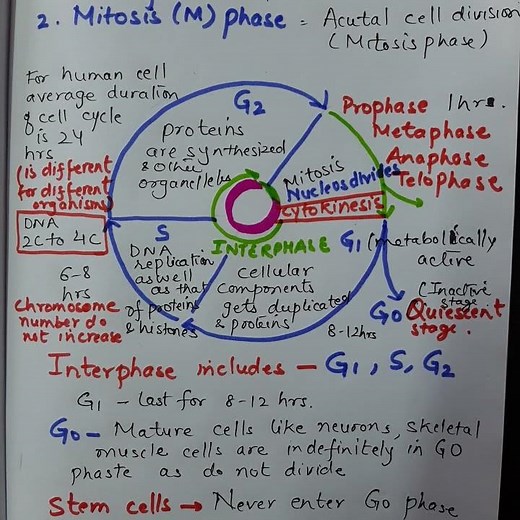 2. Mitosis (M) phase = Acutal cell division
(Mitosis phase)
For human cell
average duration
of cell cycle
is 24
hrs
(is different
for different
organisms)
DNA
2C to 4C
6-8
hrs
Chromosome
number do
not increase
G2
proteins
are synthesized
& other
organelles
Mitosis
Nucleus divides
cytokinesis
Prophase 1hr.
Metaphase
Anaphase
Telophase
INTERPHASE
S
DNA
replication
as well
as that
of proteins
& histones
cellular
components
gets duplicated
& proteins
G1 (metabolically
active
8-12hrs
(Inactive
stage
G0 Quiescent
stage.
Interphase includes - G1, S, G2
G1 - last for 8-12 hrs.
G0 - Mature cells like neurons, skeletal
muscle cells are indefinitely in G0
phaste as do not divide
Stem cells → Never enter G0 phase